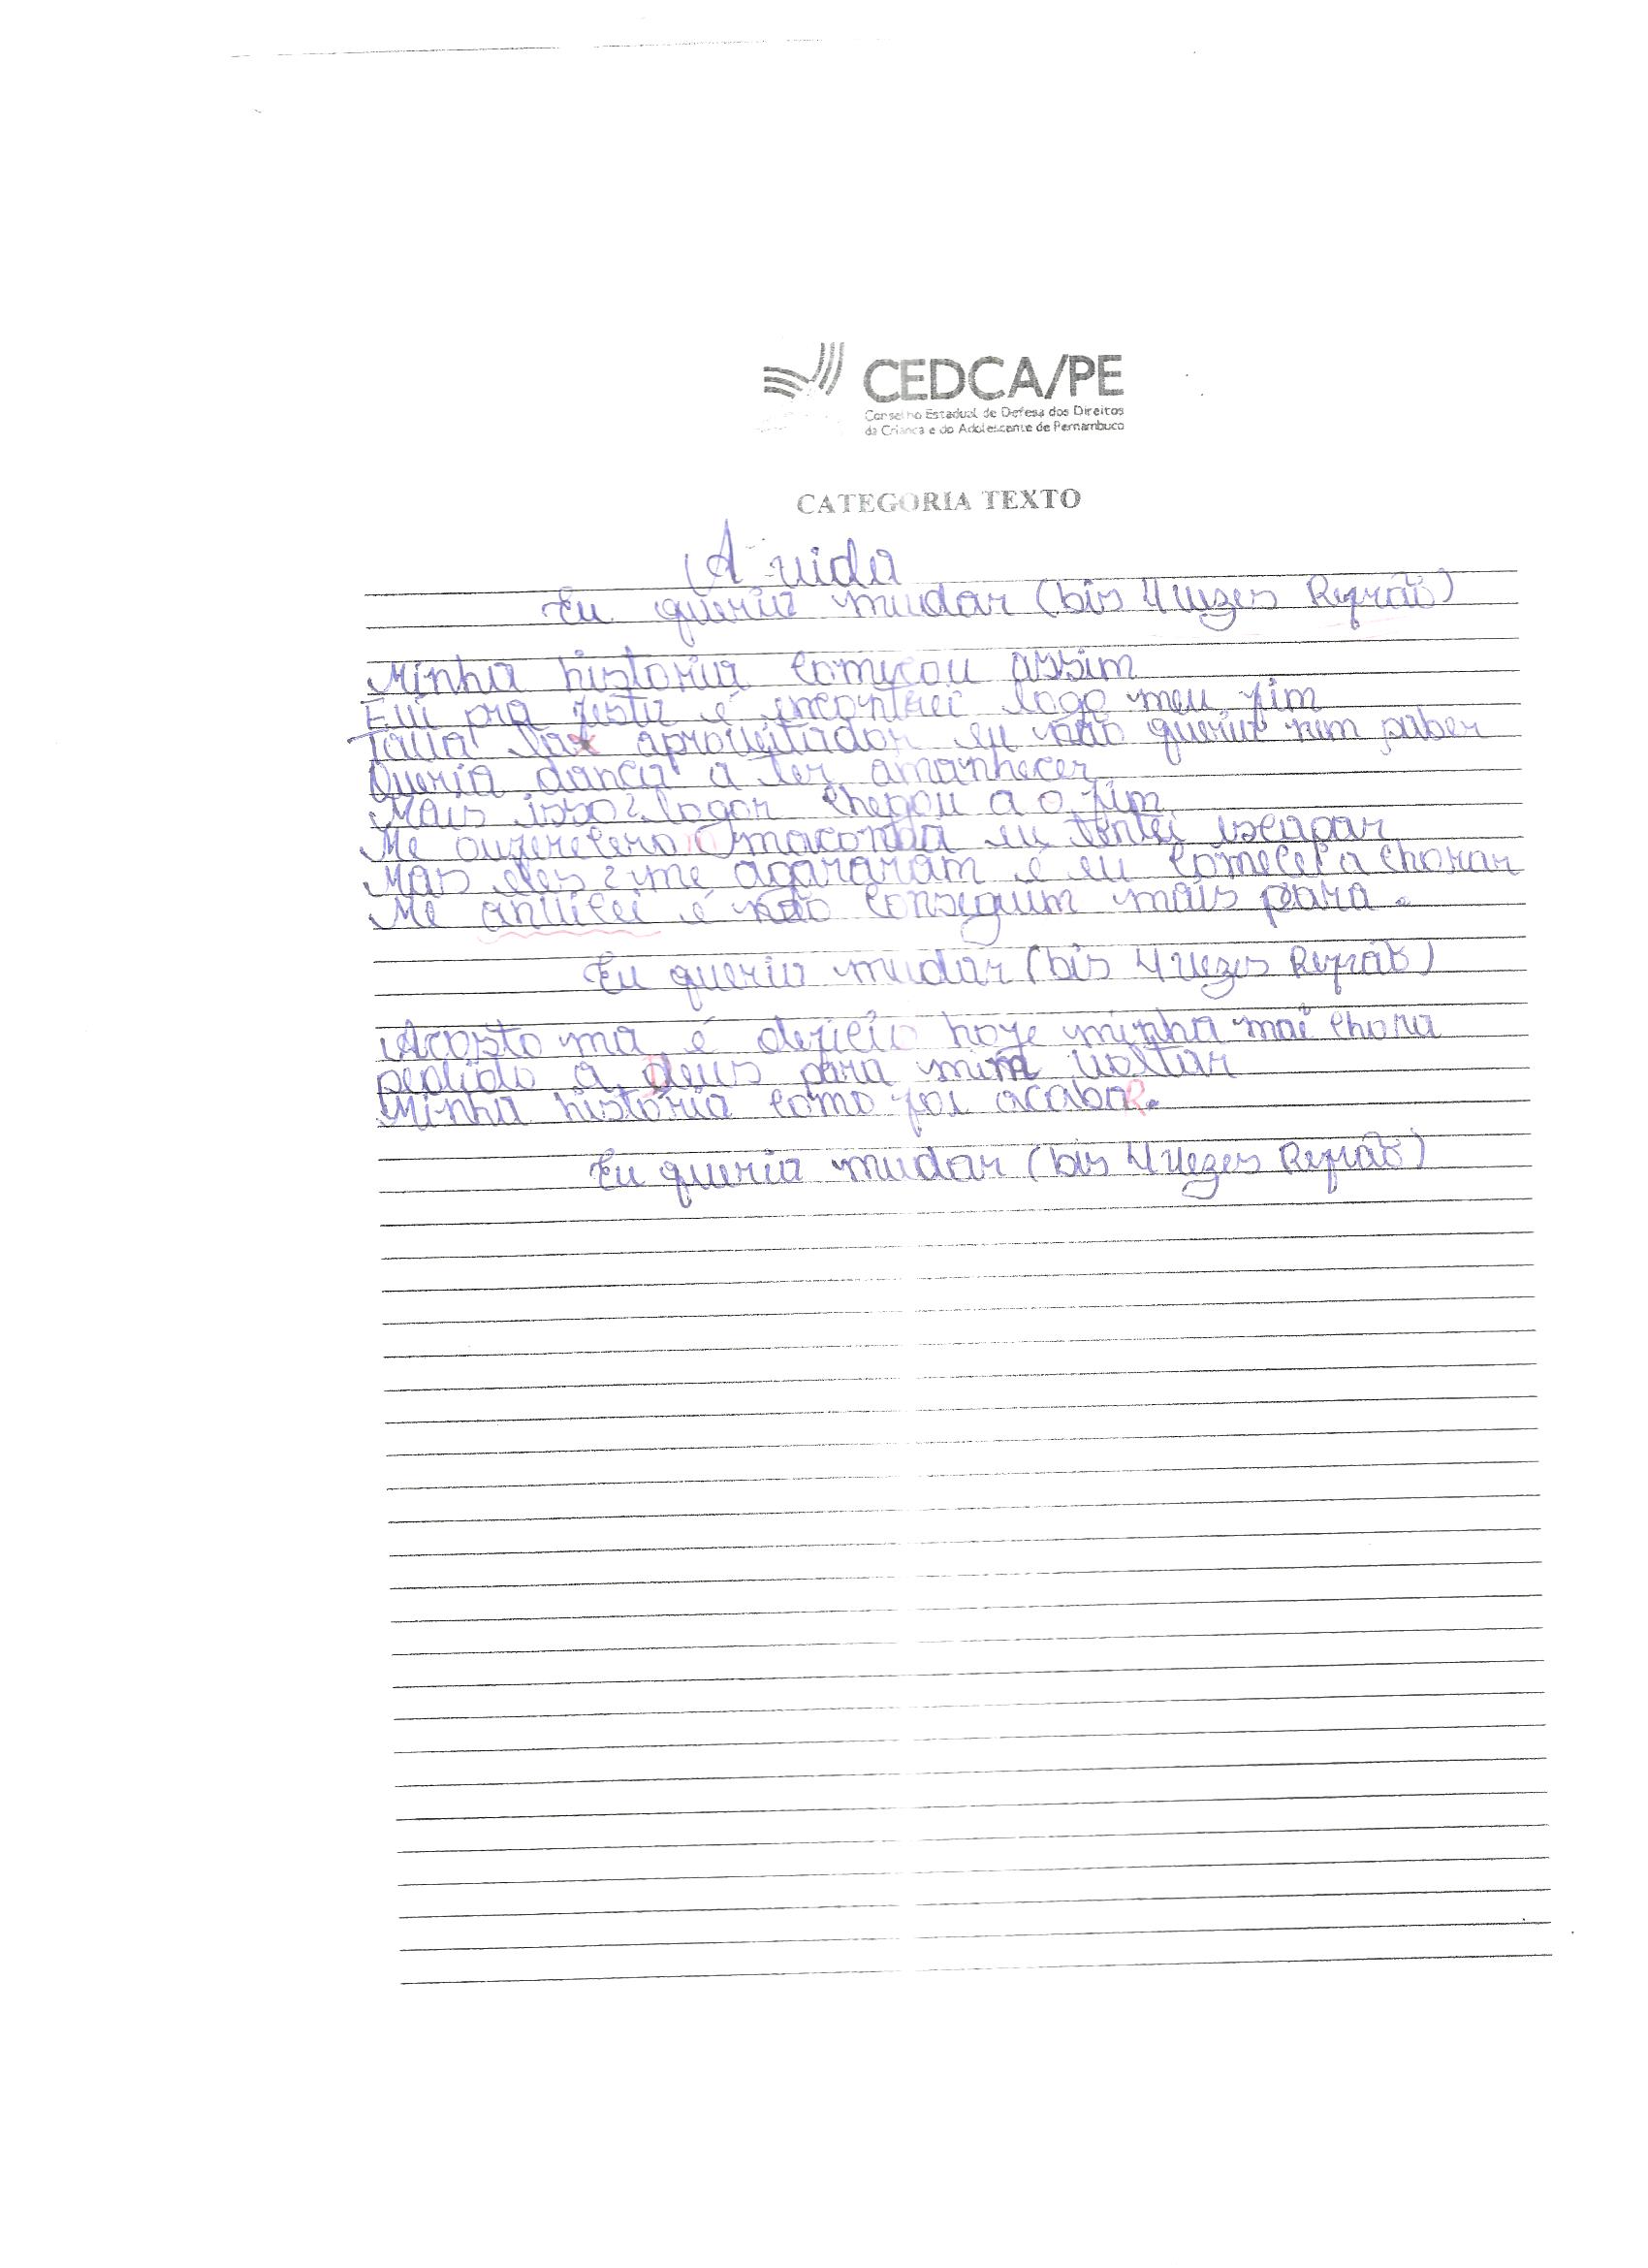 CEDCA/PE
Conselho Estadual de Defesa dos Direitos
da Criança e do Adolescente de Pernambuco
CATEGORIA TEXTO
A vida
Eu queria mudar (bis 4 vezes Refrão)
Minha historia começou assim
Fui pra festa é encontrei logo meu fim
Tava la aproveitador eu não queria nem saber
Queria dança a ter amanhecer
Mais isso? logor chegou a o fim
Me maconha eu tentei escapar
Mas eles? me agararam é eu comecei a chorar
Me é não conseguim mais para.
Eu queria mudar (bis 4 vezes Refrão)
Acosto ma é deficio hoze minha maê chora
pedido a Deus para mim voltar
Minha historia como foi acabaR.
Eu queria mudar (bis 4 vezes Refrão)